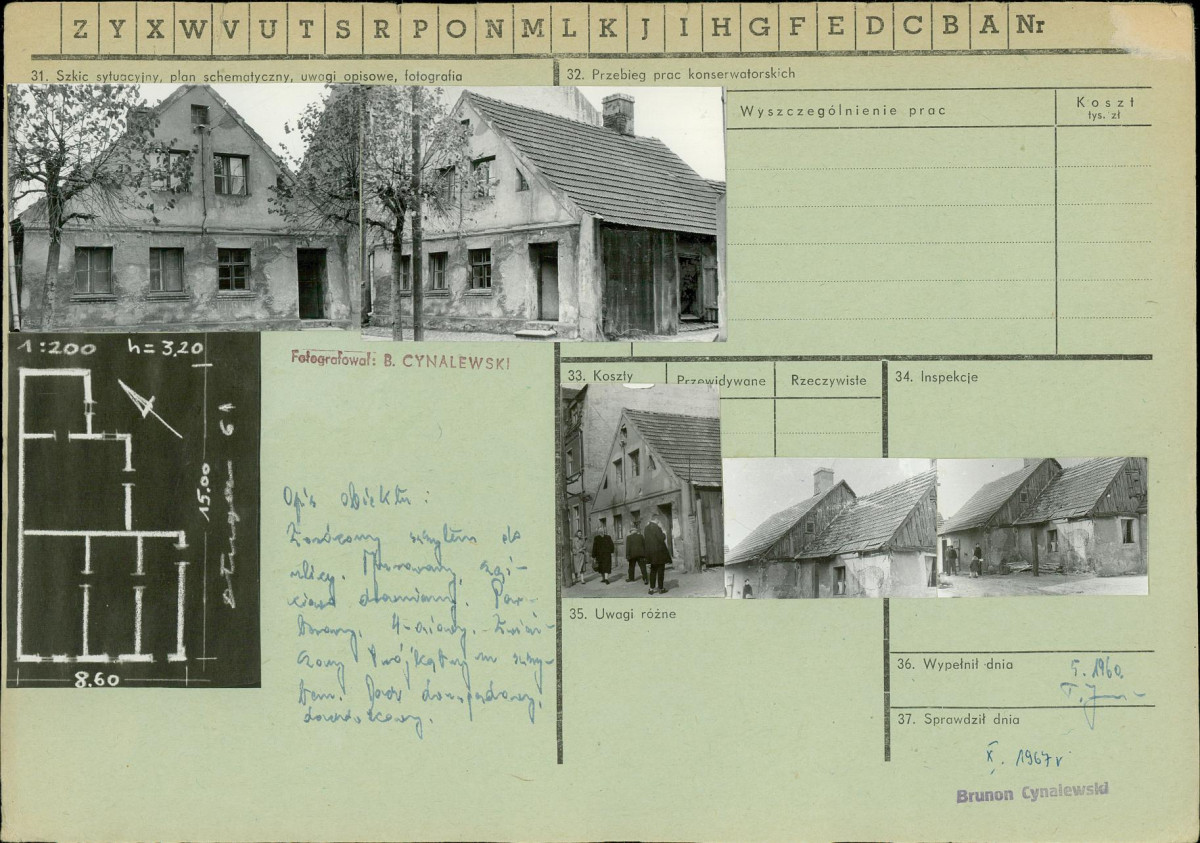 Z Y X W V U T S R P O N M L K J I H G F E D C B A Nr
31. Szkic sytuacyjny, plan schematyczny, uwagi opisowe, fotografia
32. Przebieg prac konserwatorskich
Wyszczególnienie prac
Koszt
tys. zł
1:200 h=3,20
15.00
Długa 61
8.60
Fotografował: B. CYNALEWSKI
Opis obiektu:
Zwrócony szczytem do
ulicy. Murowany, częś-
ciowo drewniany. Par-
terowy. 4-osiowy. Zwień-
czony trójkątnym szczy-
tem. Dach dwuspadowy,
dachówkowy.
33. Koszty
Przewidywane
Rzeczywiste
34. Inspekcje
35. Uwagi różne
36. Wypełnił dnia
5. 1960.
37. Sprawdził dnia
X. 1967 r
Brunon Cynalewski